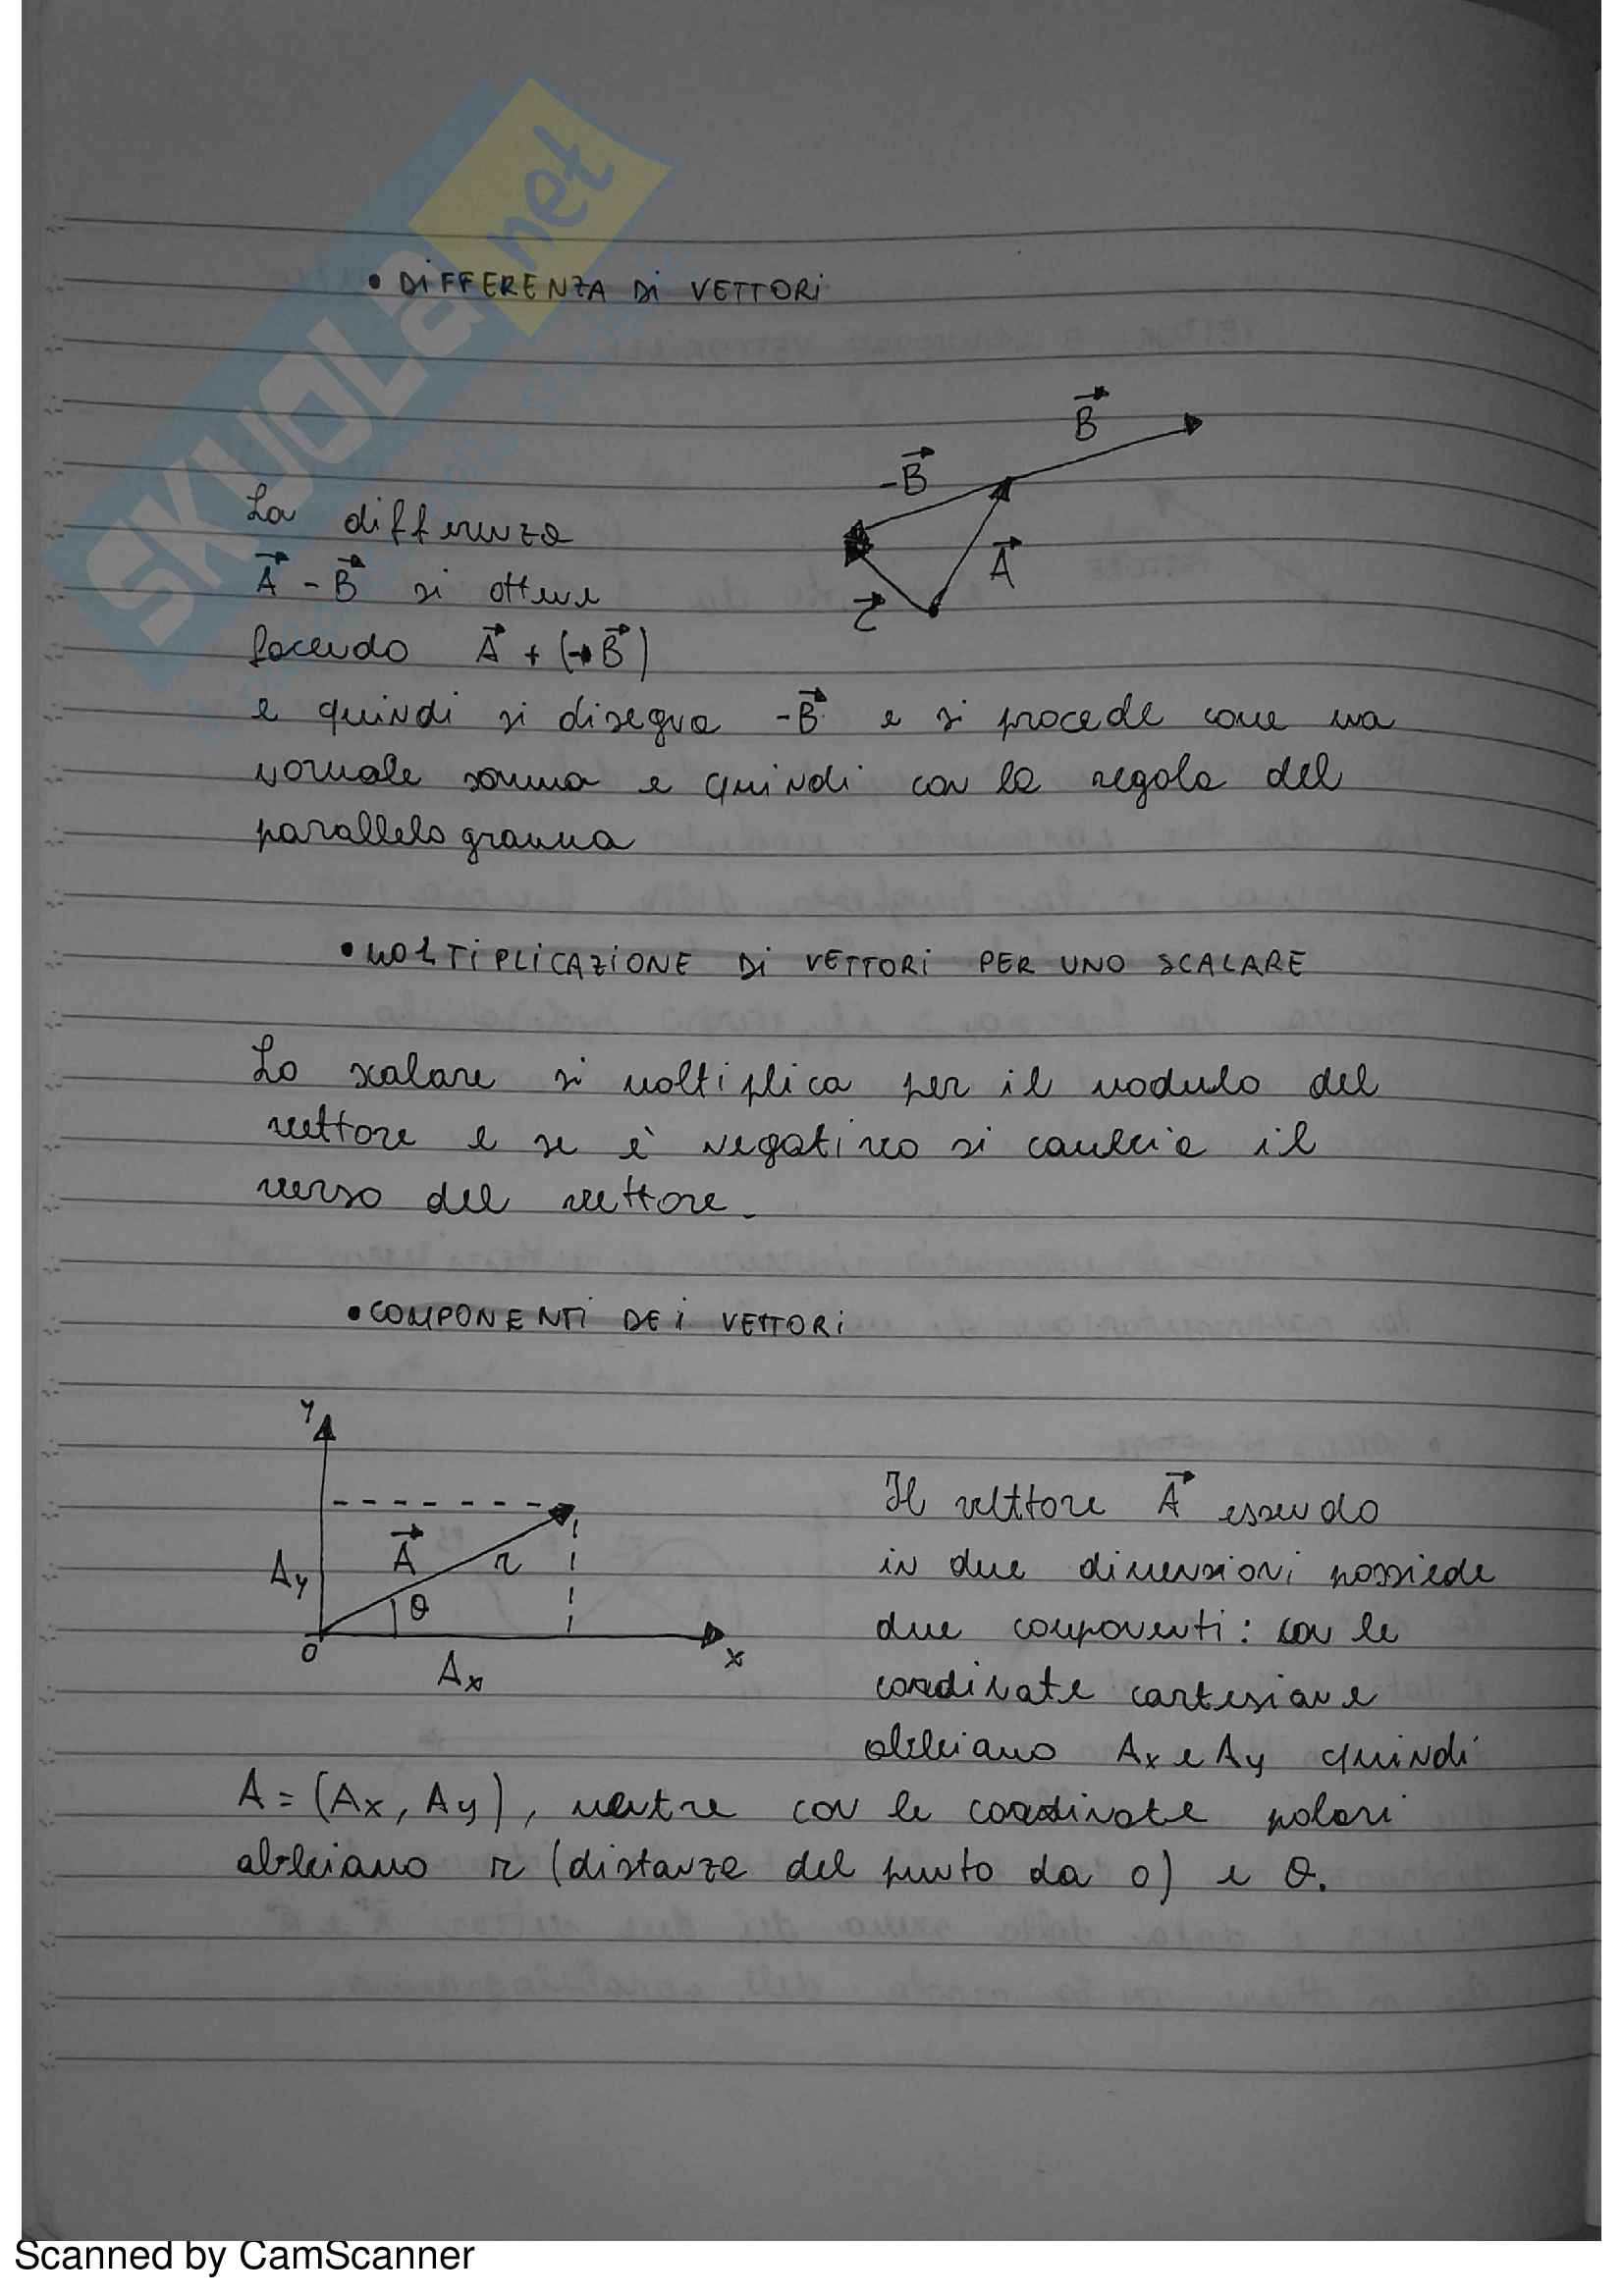 SKUOLA.net
• DIFFERENZA DI VETTORI
B
-B
A
La differenza
A - B si ottiene
facendo A + (-B)
e quindi si disegna -B e si procede come una
normale somma e quindi con la regola del
parallelogramma
• MOLTIPLICAZIONE DI VETTORI PER UNO SCALARE
Lo scalare si moltiplica per il modulo del
vettore e se è negativo si cambia il
verso del vettore.
• COMPONENTI DEI VETTORI
y
A
r
Ay
θ
O
x
Ax
Il vettore A essendo
in due dimensioni possiede
due componenti: con le
coordinate cartesiane
abbiamo Ax e Ay quindi
A = (Ax, Ay), mentre con le coordinate polari
abbiamo r (distanza del punto da O) e θ.
Scanned by CamScanner